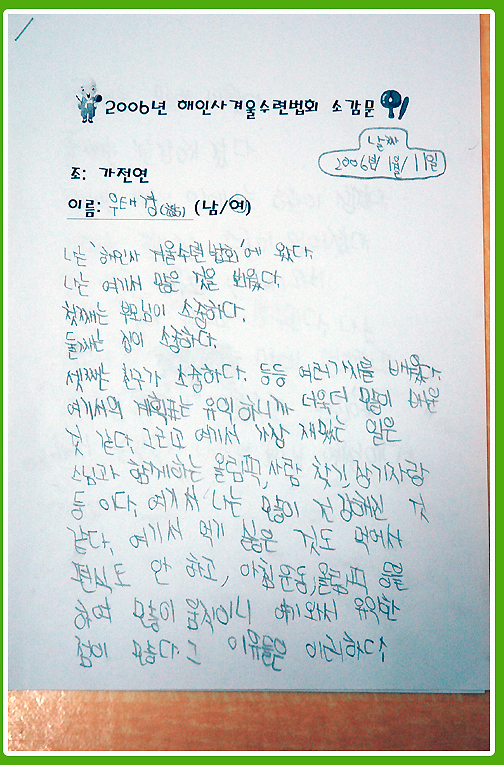 2006년 해인사겨울수련법회 소감문
날짜
2006년 1월/11일
조: 가전연
이름: 우태경 (남/여)
나는 '해인사 겨울수련법회'에 왔다.
나는 여기서 많은 것을 배웠다.
첫째는 부모님이 소중하다.
둘째는 집이 소중하다.
셋째는 친구가 소중하다. 등등 여러가지를 배웠다.
여기서의 계획표는 유익하니까 더욱더 많이 배운
것 같다. 그리고 여기서 가장 재밌는 일은
스님과 함께하는 올림픽, 사람 찾기, 장기자랑
등 이다. 여기서 나는 많이 건강해진 것
같다. 여기서 먹기 싫은 것도 먹어서
편식도 안 하고, 아침운동, 올림픽 등을
하며 많이 움직이니 여기와서 유익한
점이 많다. 그 이유들은 이러하다.